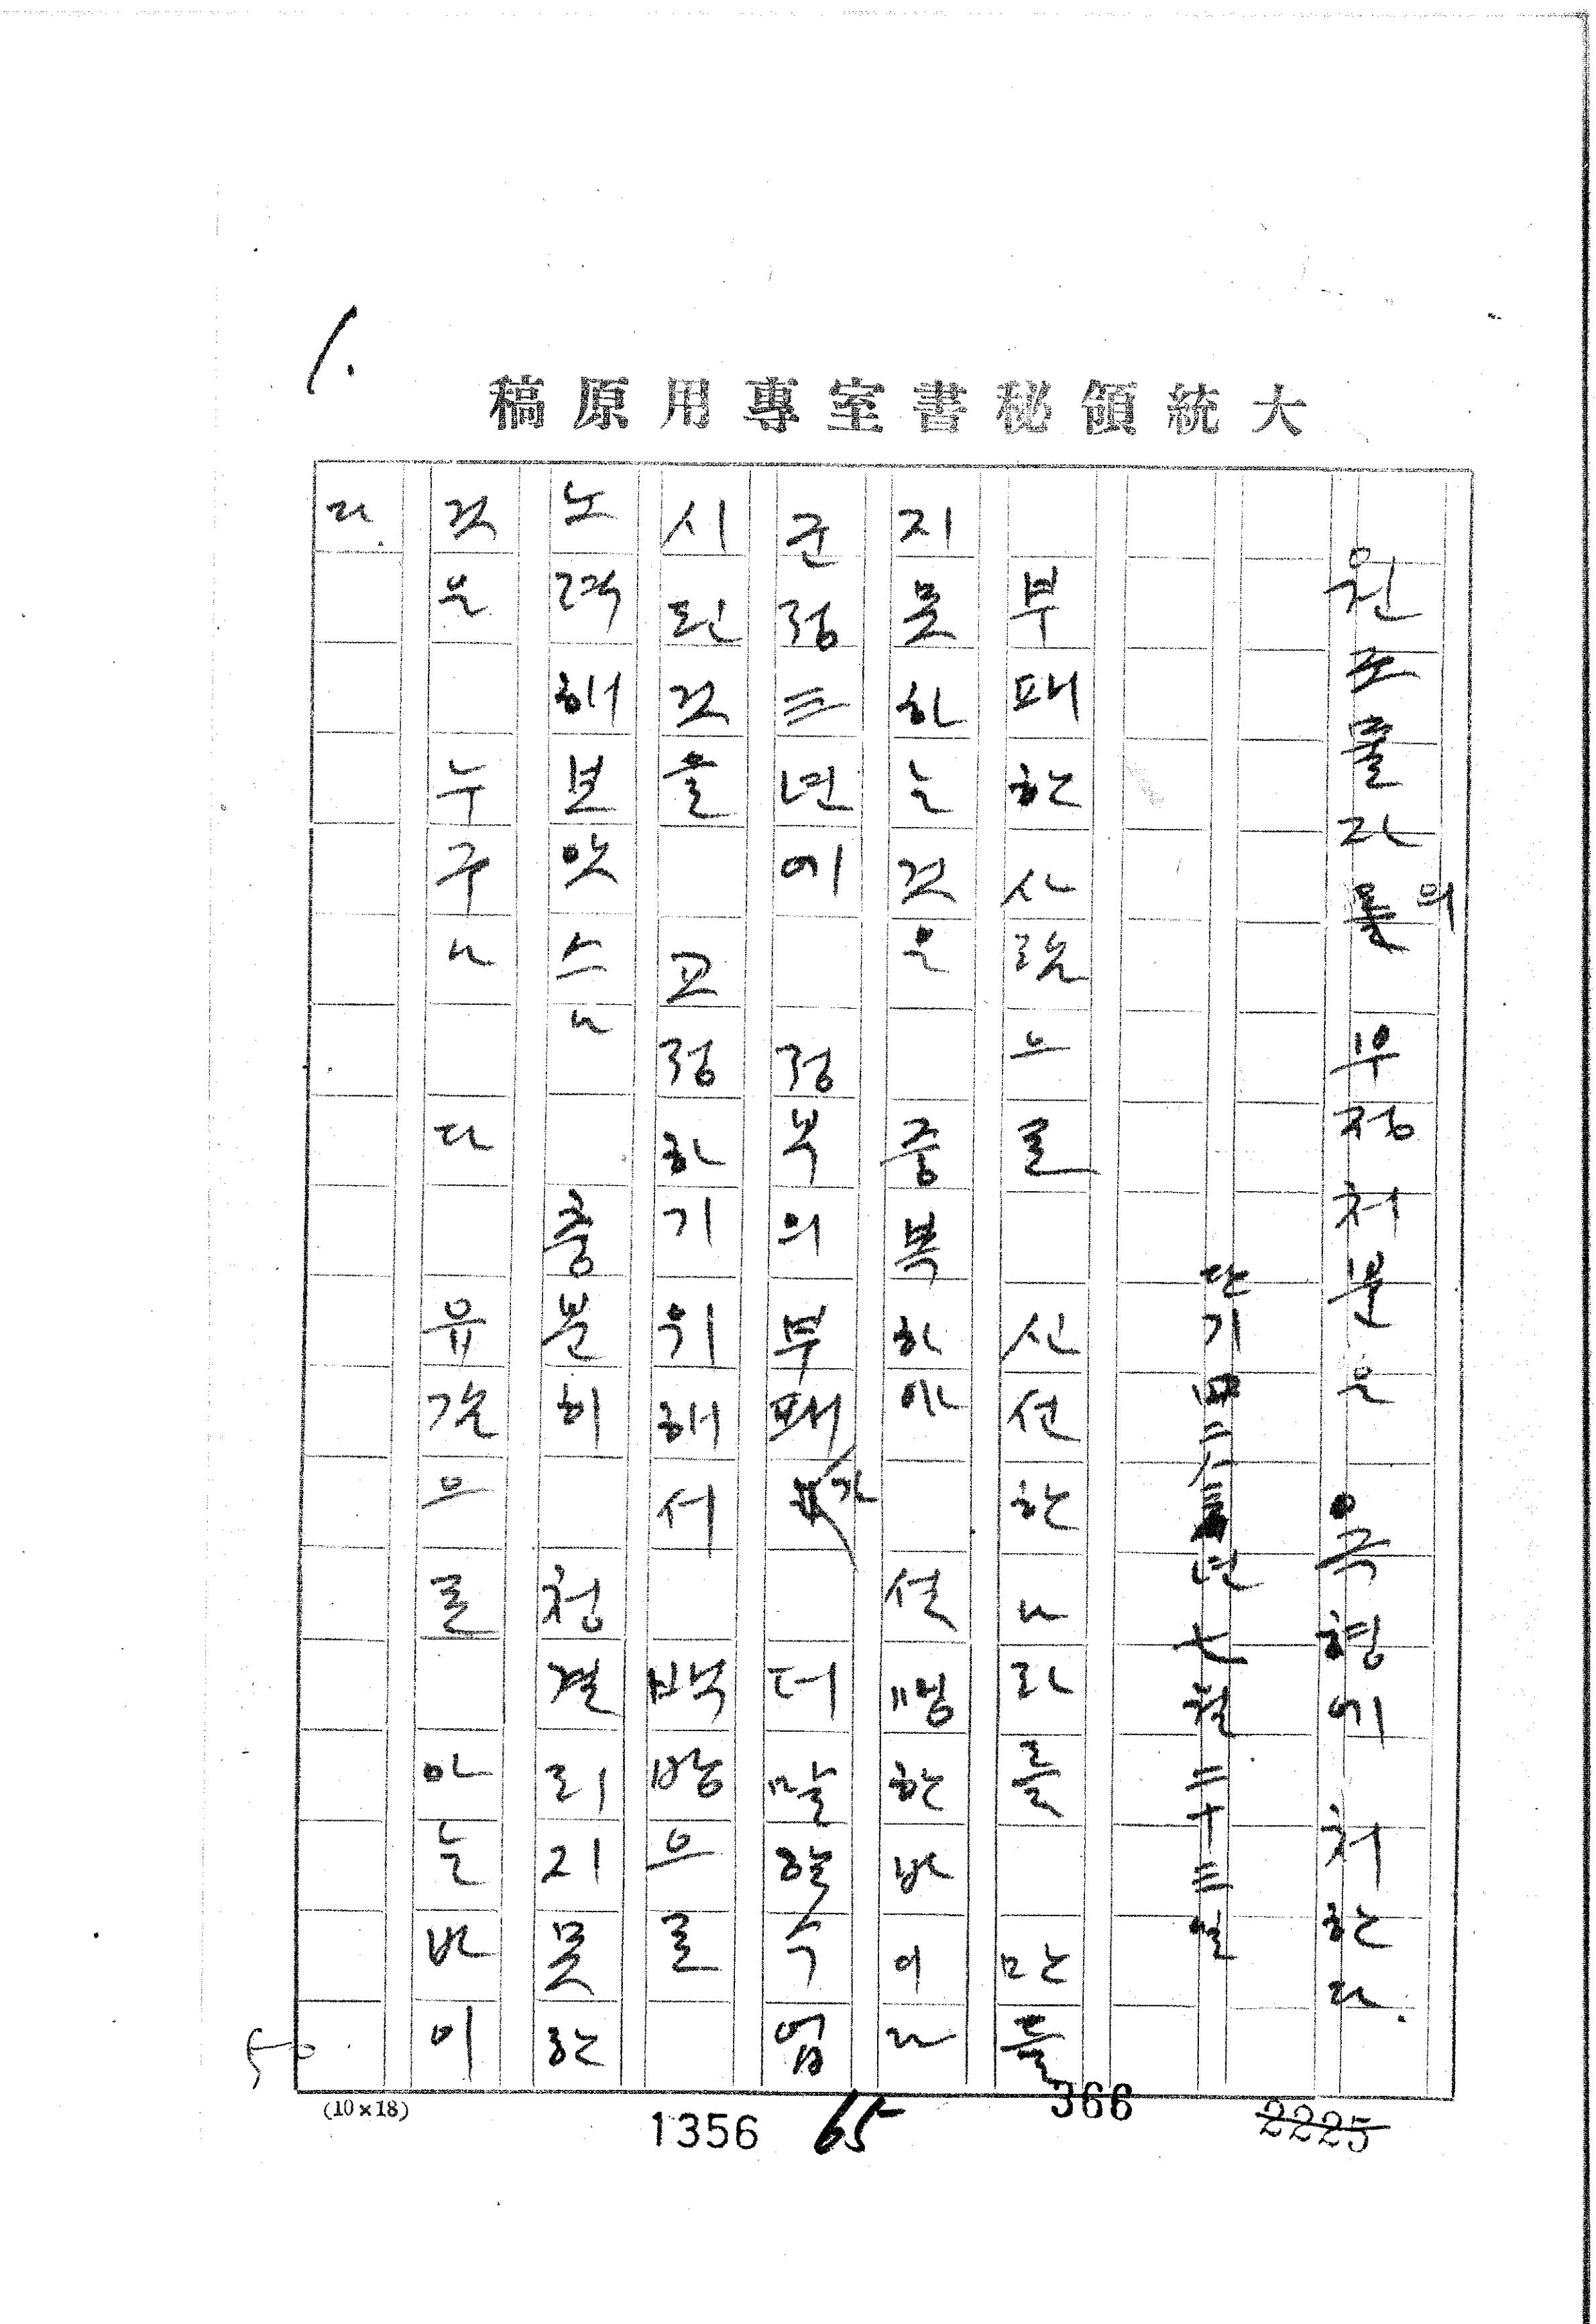 1.
大統領秘書室專用原稿
원조물자의 부정처분은 극형에 처한다.
단기 四二八 년 七월 二十三일
부패한사람으로 신선한나라를 만들
지못하는것은 중복하야 설명한바이다
군정三년에 정부의부패가 더말할수업
시된것을 고정하기위해서 백방으로
노력해보앗스나 충분히 청결리지못한
것은 누구나 다 유감으로 아는바이
다.
50
(10×18)
1356
65
366
2225